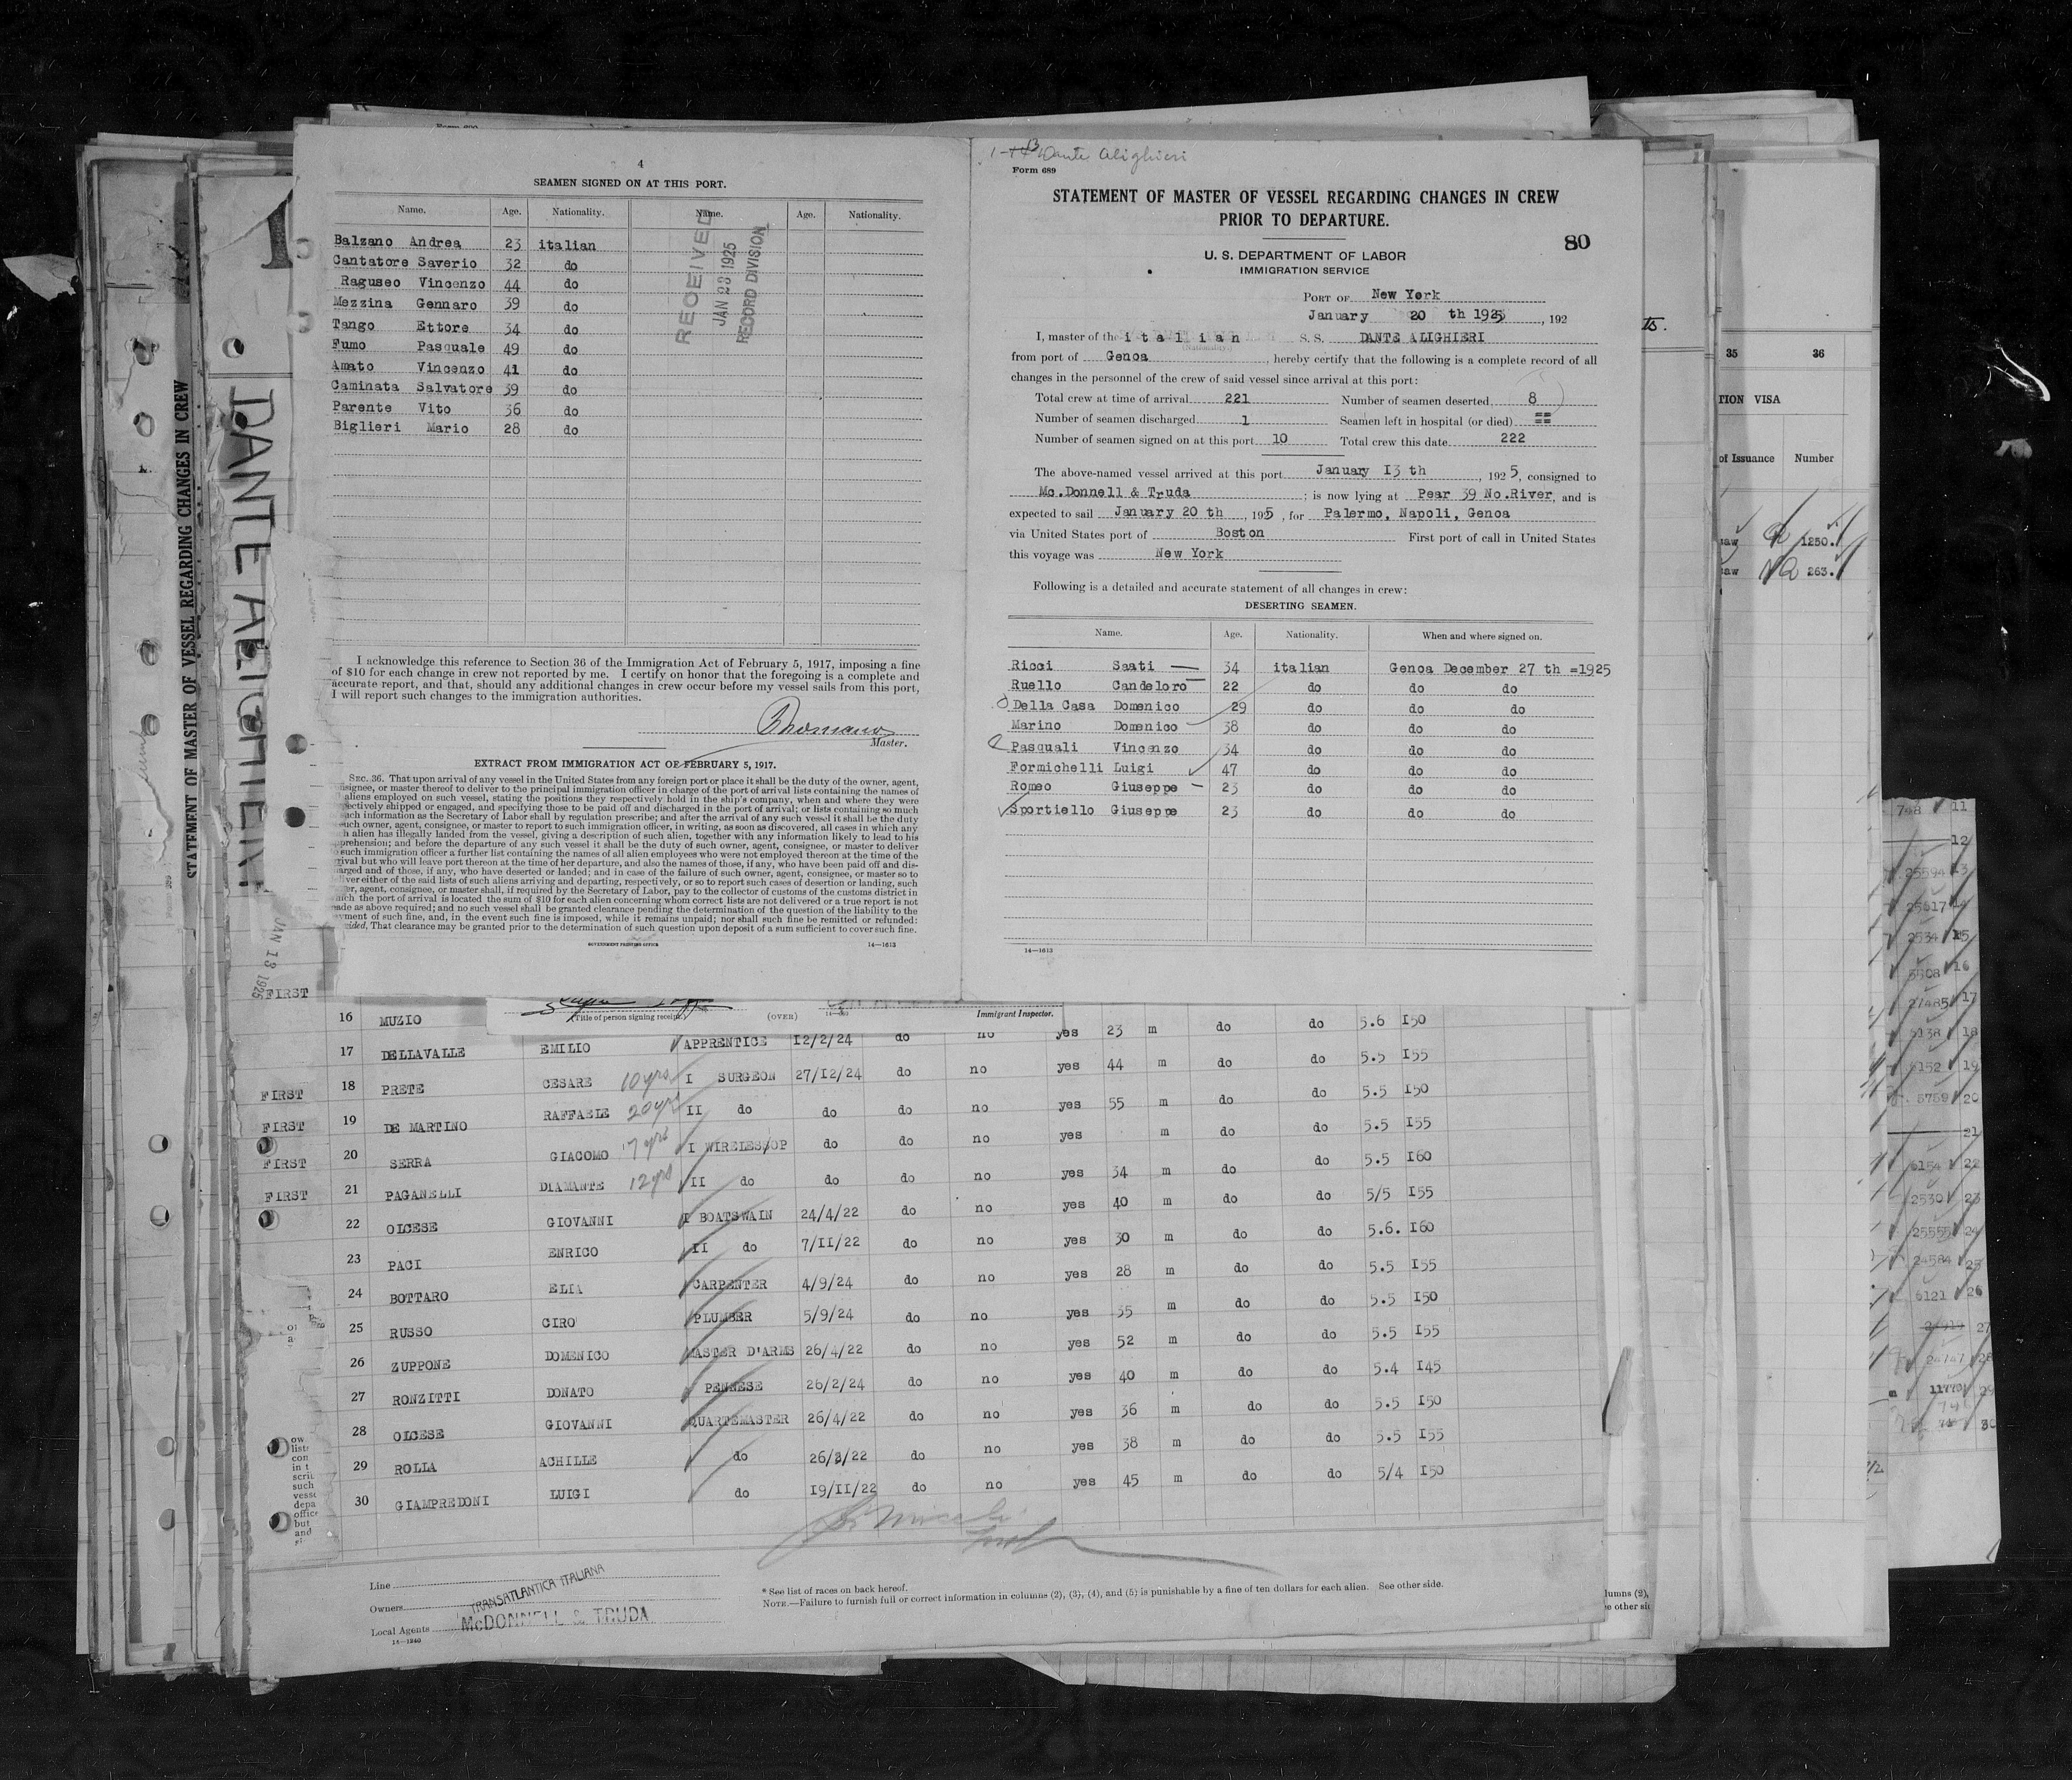 4
SEAMEN SIGNED ON AT THIS PORT.
Name. Age. Nationality. Name. Age. Nationality.
Balzano Andrea 23 italian
Cantatore Saverio 32 do
Raguseo Vincenzo 44 do
Mezzina Gennaro 39 do
Tango Ettore 34 do
Fumo Pasquale 49 do
Amato Vincenzo 41 do
Caminata Salvatore 39 do
Parente Vito 36 do
Biglieri Mario 28 do
RECEIVED
JAN 23 1925
RECORD DIVISION
I acknowledge this reference to Section 36 of the Immigration Act of February 5, 1917, imposing a fine
of $10 for each change in crew not reported by me. I certify on honor that the foregoing is a complete and
accurate report, and that, should any additional changes in crew occur before my vessel sails from this port,
I will report such changes to the immigration authorities.
Master.
EXTRACT FROM IMMIGRATION ACT OF FEBRUARY 5, 1917.
SEC. 36. That upon arrival of any vessel in the United States from any foreign port or place it shall be the duty of the owner, agent,
nsignee, or master thereof to deliver to the principal immigration officer in charge of the port of arrival lists containing the names of
aliens employed on such vessel, stating the positions they respectively hold in the ship's company, when and where they were
pectively shipped or engaged, and specifying those to be paid off and discharged in the port of arrival; or lists containing so much
ach information as the Secretary of Labor shall by regulation prescribe; and after the arrival of any such vessel it shall be the duty
such owner, agent, consignee, or master to report to such immigration officer, in writing, as soon as discovered, all cases in which any
h alien has illegally landed from the vessel, giving a description of such alien, together with any information likely to lead to his
prehension; and before the departure of any such vessel it shall be the duty of such owner, agent, consignee, or master to deliver
such immigration officer a further list containing the names of all alien employees who were not employed thereon at the time of the
rival but who will leave port thereon at the time of her departure, and also the names of those, if any, who have been paid off and dis-
arged and of those, if any, who have deserted or landed; and in case of the failure of such owner, agent, consignee, or master so to
liver either of the said lists of such aliens arriving and departing, respectively, or so to report such cases of desertion or landing, such
er, agent, consignee, or master shall, if required by the Secretary of Labor, pay to the collector of customs of the customs district in
hich the port of arrival is located the sum of $10 for each alien concerning whom correct lists are not delivered or a true report is not
ade as above required; and no such vessel shall be granted clearance pending the determination of the question of the liability to the
yment of such fine, and, in the event such fine is imposed, while it remains unpaid; nor shall such fine be remitted or refunded:
vided, That clearance may be granted prior to the determination of such question upon deposit of a sum sufficient to cover such fine.
GOVERNMENT PRINTING OFFICE 14—1613
Dante Alighieri
Form 689
STATEMENT OF MASTER OF VESSEL REGARDING CHANGES IN CREW
PRIOR TO DEPARTURE.
80
U. S. DEPARTMENT OF LABOR
IMMIGRATION SERVICE
PORT OF New York
January 20 th 1925, 192
I, master of the italian S. S. DANTE ALIGHIERI
(Nationality.)
from port of Genoa, hereby certify that the following is a complete record of all
changes in the personnel of the crew of said vessel since arrival at this port:
Total crew at time of arrival 221 Number of seamen deserted 8
Number of seamen discharged 1 Seamen left in hospital (or died) ==
Number of seamen signed on at this port 10 Total crew this date 222
The above-named vessel arrived at this port January I3 th, 1925, consigned to
Mc.Donnell & Truda; is now lying at Pear 39 No.River, and is
expected to sail January 20 th, 195, for Palermo, Napoli, Genoa
via United States port of Boston First port of call in United States
this voyage was New York
Following is a detailed and accurate statement of all changes in crew:
DESERTING SEAMEN.
Name. Age. Nationality. When and where signed on.
Ricci Saati 34 italian Genoa December 27 th =1925
Ruello Candeloro 22 do do do
Della Casa Domenico 29 do do do
Marino Domenico 38 do do do
Pasquali Vincenzo 34 do do do
Formichelli Luigi 47 do do do
Romeo Giuseppe 23 do do do
Sportiello Giuseppe 23 do do do
14—1613
STATEMENT OF MASTER OF VESSEL REGARDING CHANGES IN CREW
DANTE ALIGHIERI
JAN 13 1925
35 36
TION VISA
of Issuance Number
1250.
263.
(Title of person signing receipt.) (OVER) Immigrant Inspector.
FIRST
16 MUZIO no yes 23 m do do 5.6 I50
17 DELLAVALLE EMILIO APPRENTICE I2/2/24 do no yes 44 m do do 5.5 I55
FIRST 18 PRETE CESARE 10 yrs I SURGEON 27/I2/24 do no yes 55 m do do 5.5 I50
FIRST 19 DE MARTINO RAFFAELE 20 yrs II do do do no yes m do do 5.5 I55
FIRST 20 SERRA GIACOMO 7 yrs I WIRELES/OP do do no yes 34 m do do 5.5 I60
FIRST 21 PAGANELLI DIAMANTE 12 yrs II do do do no yes 40 m do do 5/5 I55
22 OLCESE GIOVANNI I BOATSWAIN 24/4/22 do no yes 30 m do do 5.6. I60
23 PACI ENRICO II do 7/II/22 do no yes 28 m do do 5.5 I55
24 BOTTARO ELIA CARPENTER 4/9/24 do no yes 35 m do do 5.5 I50
25 RUSSO CIRO PLUMBER 5/9/24 do no yes 52 m do do 5.5 I55
26 ZUPPONE DOMENICO MASTER D'ARMS 26/4/22 do no yes 40 m do do 5.4 I45
27 RONZITTI DONATO PENNESE 26/2/24 do no yes 36 m do do 5.5 I50
28 OLCESE GIOVANNI QUARTEMASTER 26/4/22 do no yes 38 m do do 5.5 I55
29 ROLLA ACHILLE do 26/8/22 do no yes 45 m do do 5/4 I50
30 GIAMPREDONI LUIGI do I9/II/22 do no
Line
Owners TRANSATLANTICA ITALIANA
Local Agents McDONNELL & TRUDA
14—1240
* See list of races on back hereof.
NOTE.—Failure to furnish full or correct information in columns (2), (3), (4), and (5) is punishable by a fine of ten dollars for each alien. See other side.